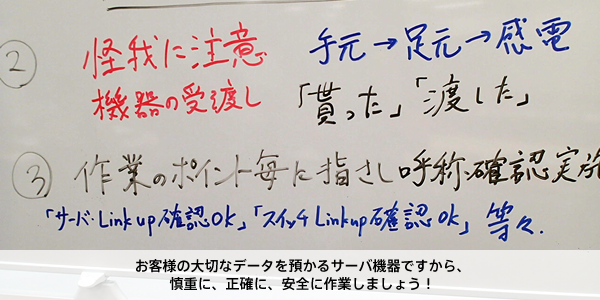 ② 怪我に注意 手元→足元→感電
機器の受渡し 「貰った」「渡した」
③ 作業のポイント毎に指さし呼称確認実施
「サーバ:Link up確認OK」「スイッチLink up確認OK」等々.
お客様の大切なデータを預かるサーバ機器ですから、
慎重に、正確に、安全に作業しましょう!